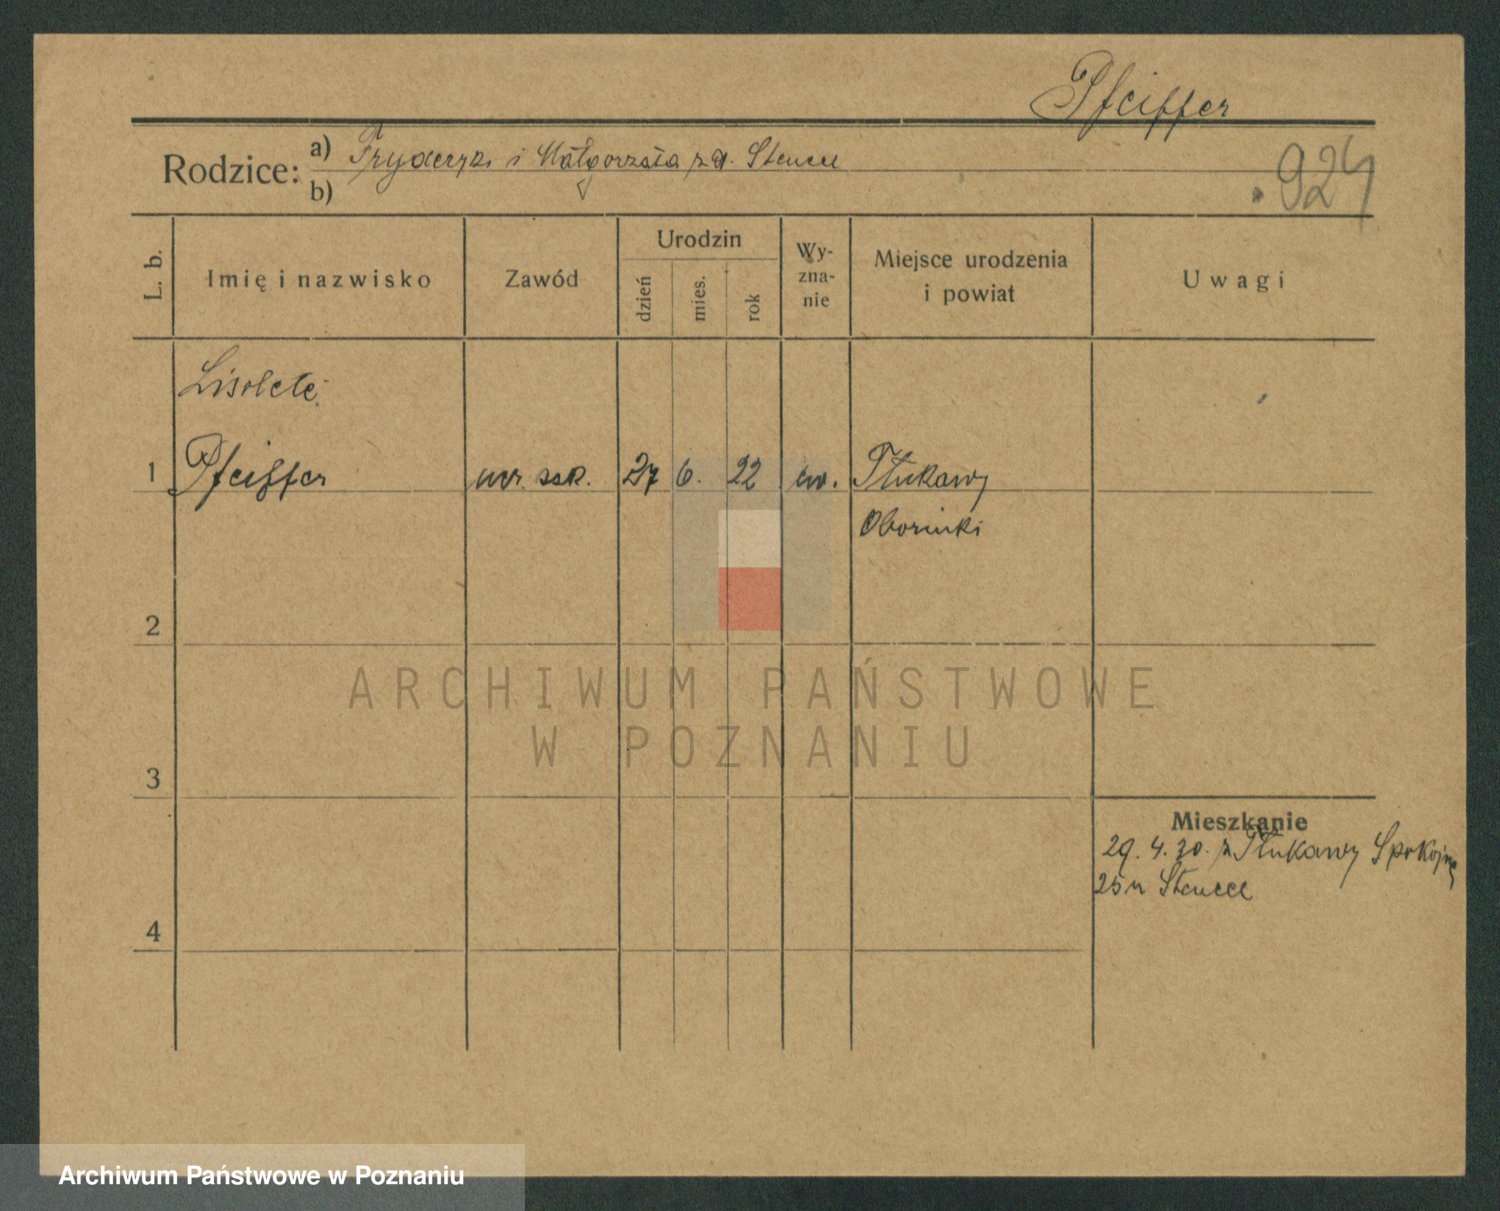 Pfeiffer
Rodzice: a) Fryderyk i Małgorzata z d. Stencel
b)
924
L. b.
Imię i nazwisko
Zawód
Urodzin
dzień
mies.
rok
Wy-
zna-
nie
Miejsce urodzenia
i powiat
Uwagi
Lisolete
1 Pfeiffer ucz. szk. 27 6. 22 ew. Tłukawy
Oborniki
2
3
4
Mieszkanie
29. 4. 30. z Tłukawy Spokojna
25 u Stencel
ARCHIWUM PAŃSTWOWE
W POZNANIU
Archiwum Państwowe w Poznaniu